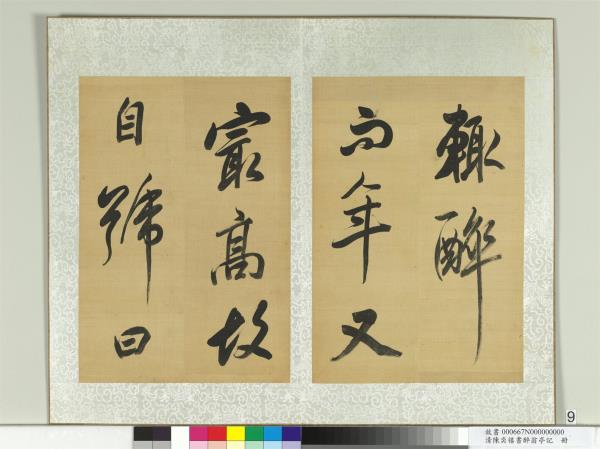 輙醉
而年又
冣高故
自號曰
9
故書 000667N000000000
清陳奕禧書醉翁亭記 冊